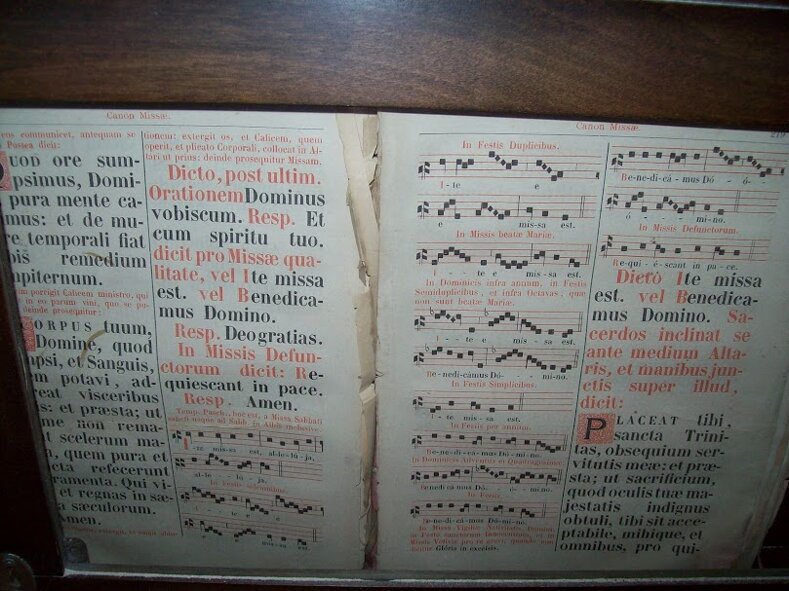 Canon Missæ.
communicet, antequam se
Postea dicit:
QUOD ore sum-
psimus, Domi-
pura mente ca-
mus: et de mu-
re temporali fiat
remedium
mpiternum.
porrigit Calicem ministro, qui
in eo parum vini, quo se pu-
deinde prosequitur:
CORPUS tuum,
Domine, quod
et Sanguis,
potavi, ad-
visceribus
et præsta; ut
me non rema-
scelerum ma-
quem pura et
refecerunt
ramenta. Qui vi-
et regnas in sæ-
a sæculorum.
Amen.
tionem: extergit os, et Calicem, quem
operit, et plicato Corporali, collocat in Al-
tari ut prius: deinde prosequitur Missam.
Dicto, post ultim.
Orationem Dominus
vobiscum. Resp. Et
cum spiritu tuo.
dicit pro Missæ qua-
litate, vel Ite missa
est. vel Benedica-
mus Domino.
Resp. Deo gratias.
In Missis Defun-
ctorum dicit: Re-
quiescant in pace.
Resp. Amen.
Temp. Pasch., hoc est, a Missa Sabbati
sancti usque ad Sabb. in Albis inclusive.
I-te missa est, al-le-lú-ja,
al-le-lú-ja.
In Festis
missa est.
Canon Missæ.
219
In Festis Duplicibus.
I-te e
e missa est.
In Missis beatæ Mariæ.
I-te e mis-sa est.
In Dominicis infra annum, in Festis
Semiduplicibus, et infra Octavas, quæ
non sunt beatæ Mariæ.
I-te e mis-sa est.
Be-nedi-cámus Dó- mi-no.
In Festis Simplicibus.
I-te mis-sa est.
In Feriis per annum.
Be-ne-di-cá-mus Dó-mi-no.
In Dominicis Adventus et Quadragesimæ.
Benedi cá-mus Dó- mi-no.
In Feriis
Be-ne-di-cá-mus Dó-mi-no.
Glória in excelsis.
Be-ne-di-cá-mus Dó- ó-
ó- mi-no.
In Missis Defunctorum.
Re-qui-é-scant in pa-ce.
Dicto Ite missa
est. vel Benedica-
mus Domino. Sa-
cerdos inclinat se
ante medium Alta-
ris, et manibus jun-
ctis super illud,
dicit:
PLACEAT tibi,
sancta Trini-
tas, obsequium ser-
vitutis meæ: et præ-
sta; ut sacrificium,
quod oculis tuæ ma-
jestatis indignus
obtuli, tibi sit acce-
ptabile, mihique, et
omnibus, pro qui-